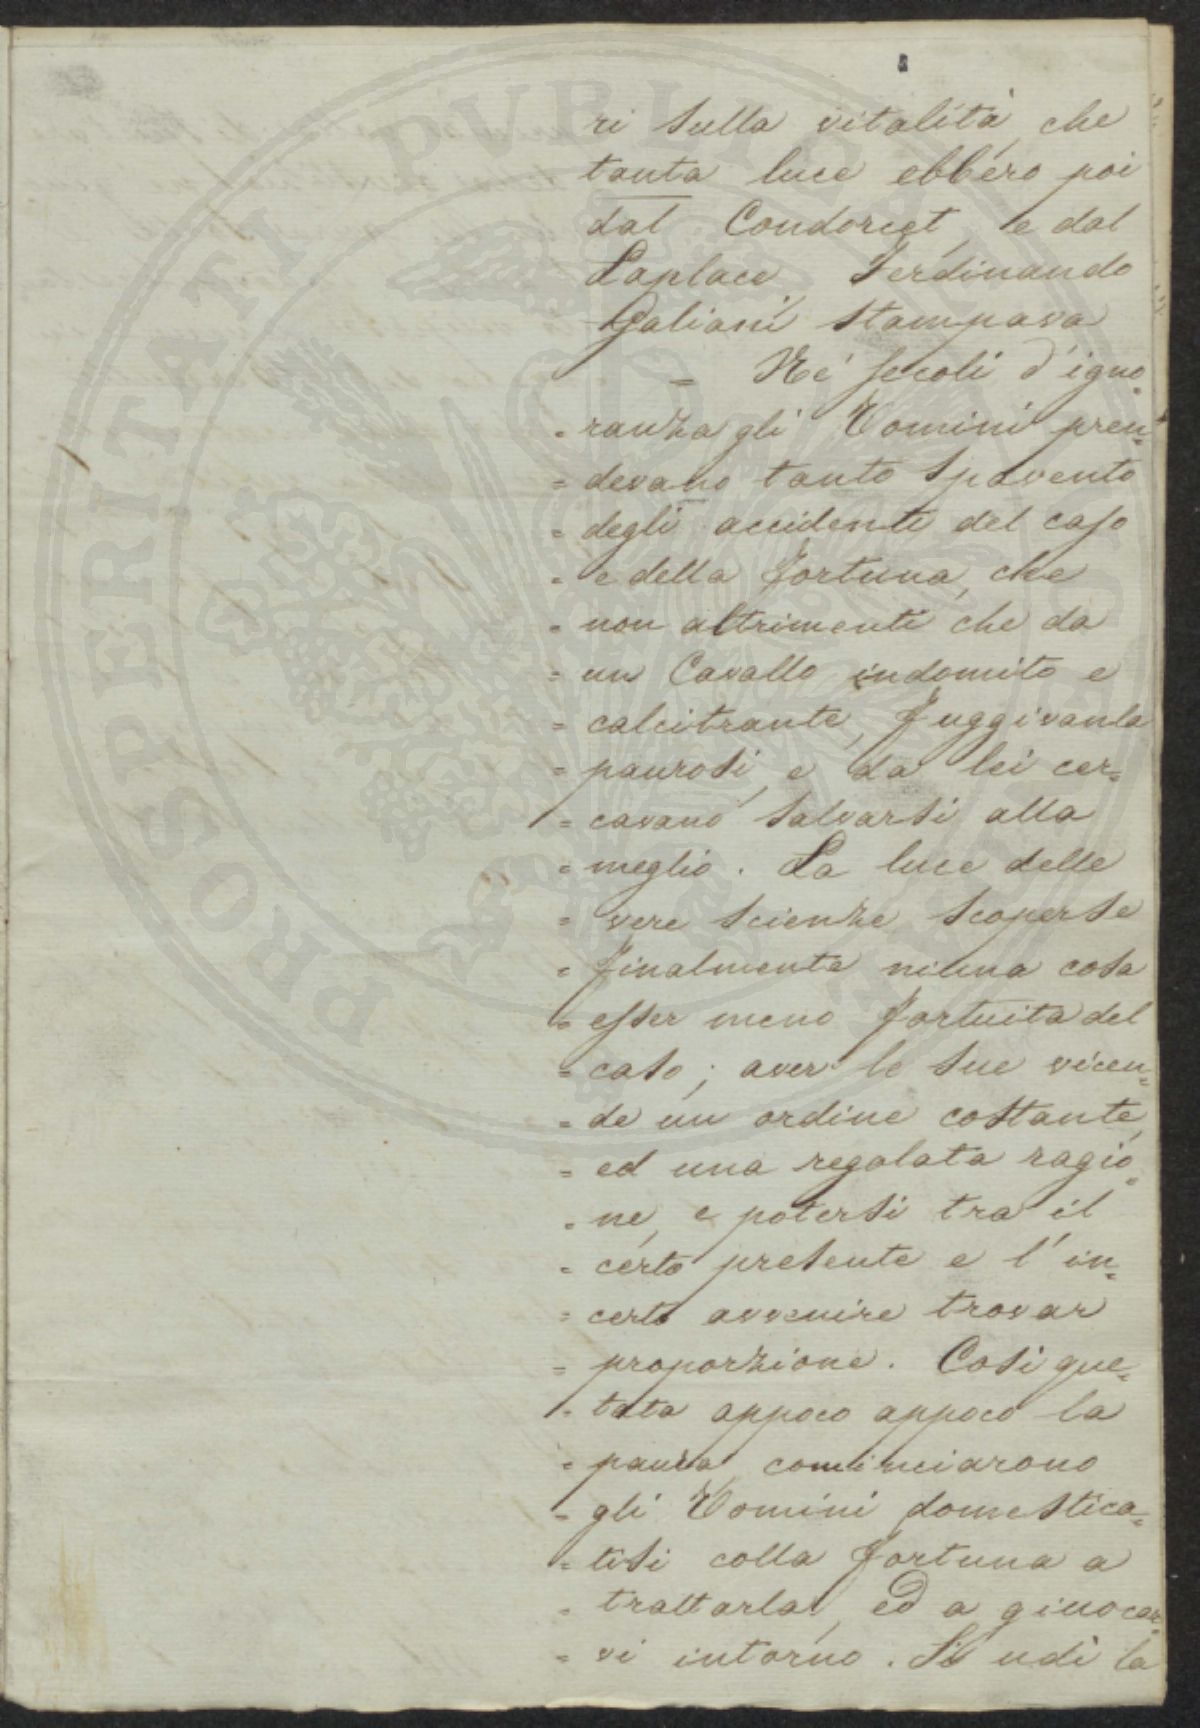 ri sulla vitalità, che
tanta luce ebbero poi
dal Condorcet, e dal
Laplace, Ferdinando
Galiani stampava
= Ne' secoli d'igno=
= ranza gli Uomini pren=
= devano tanto spavento
= degli accidenti del caso
= e della fortuna, che
= non altrimenti che da
= un Cavallo indomito e
= calcitrante, fuggivanla
= paurosi, e da lei cer=
= cavano salvarsi alla
= meglio. La luce delle
= vere scienze scoperse
= finalmente niuna cosa
= esser meno fortuita del
= caso; aver le sue vicen=
= de un ordine costante,
= ed una regolata ragio=
= ne, e potersi tra il
= certo presente e l'in=
= certo avvenire trovar
= proporzione. Così que=
= tata appoco appoco la
= paura, cominciarono
= gli Uomini domestica=
= tisi colla fortuna a
= trattarla, ed a giuocar=
= vi intorno. Si udì la
PROSPERITATI PVBLICAE